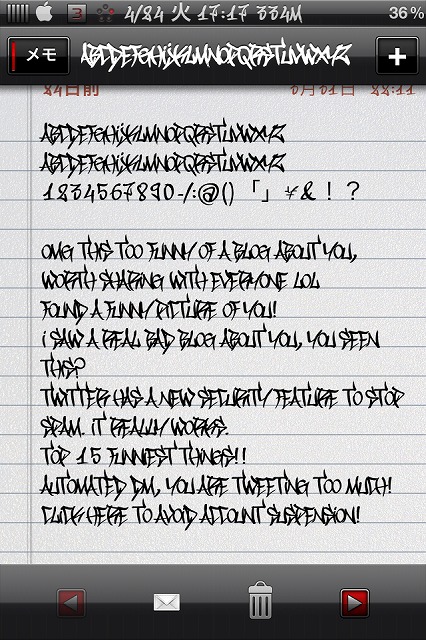 3 4/24 火 17:17 334M 36%
メモ ABCDEFGHIJKLMNOPQRSTUVWXYZ +
24日前 3月31日 22:11
ABCDEFGHIJKLMNOPQRSTUVWXYZ
ABCDEFGHIJKLMNOPQRSTUVWXYZ
1234567890-/:@()「」¥&！？
OMG THIS TOO FUNNY OF A BLOG ABOUT YOU,
WORTH SHARING WITH EVERYONE LOL
FOUND A FUNNY PICTURE OF YOU!
I SAW A REAL BAD BLOG ABOUT YOU, YOU SEEN
THIS?
TWITTER HAS A NEW SECURITY FEATURE TO STOP
SPAM. IT REALLY WORKS.
TOP 15 FUNNIEST THINGS!!
AUTOMATED DM, YOU ARE TWEETING TOO MUCH!
CLICK HERE TO AVOID ACCOUNT SUSPENSION!